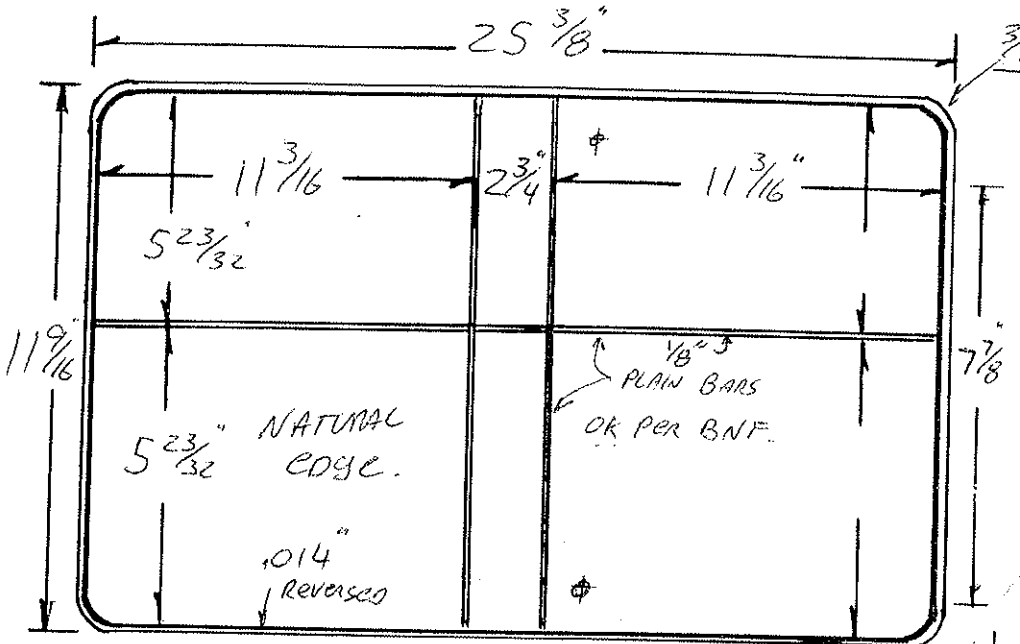 25 3/8"
11 3/16
2 3/4"
11 3/16"
5 23/32"
11 9/16"
7 7/8"
1/8"
PLAIN BARS
OK PER BNF.
5 23/32"
NATURAL
EDGE.
.014"
Reversed